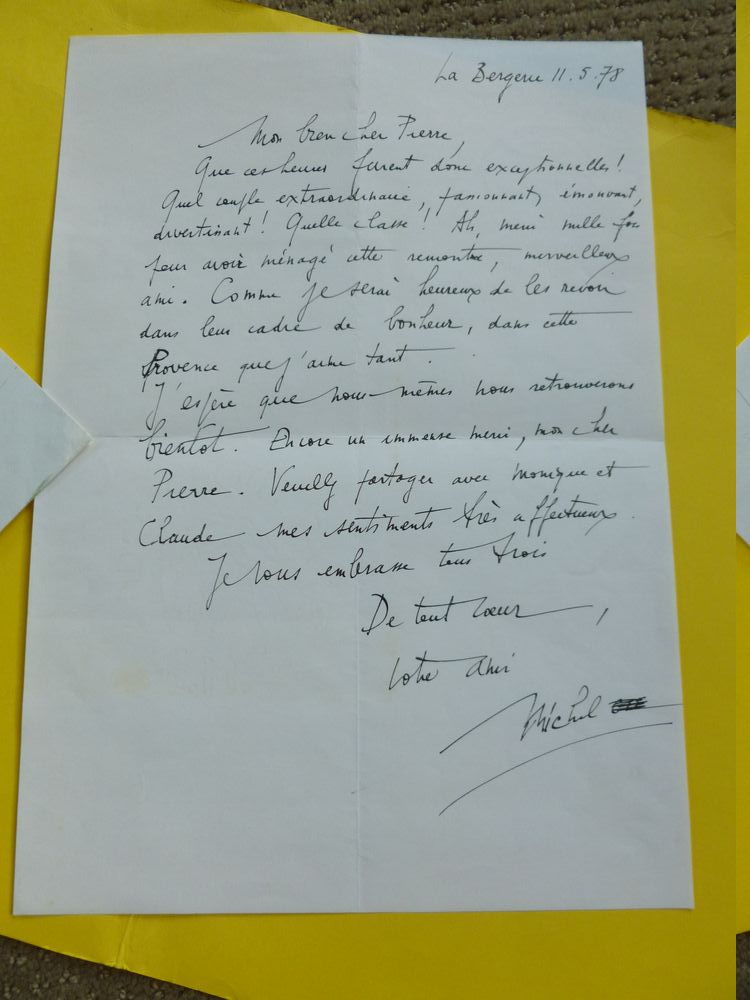 La Bergerie 11.5.78
Mon bien cher Pierre,
Que ces heures furent donc exceptionnelles !
Quel couple extraordinaire, passionnant, émouvant,
divertissant ! Quelle classe ! Ah, merci mille fois
pour avoir ménagé cette rencontre, merveilleux
ami. Comme je serai heureux de les revoir
dans leur cadre de bonheur, dans cette
Provence que j'aime tant.
J'espère que nous-mêmes nous retrouverons
bientôt. Encore un immense merci, mon cher
Pierre. Veuillez partager avec Monique et
Claude mes sentiments très affectueux.
Je vous embrasse tous trois
De tout cœur,
votre ami
Michel